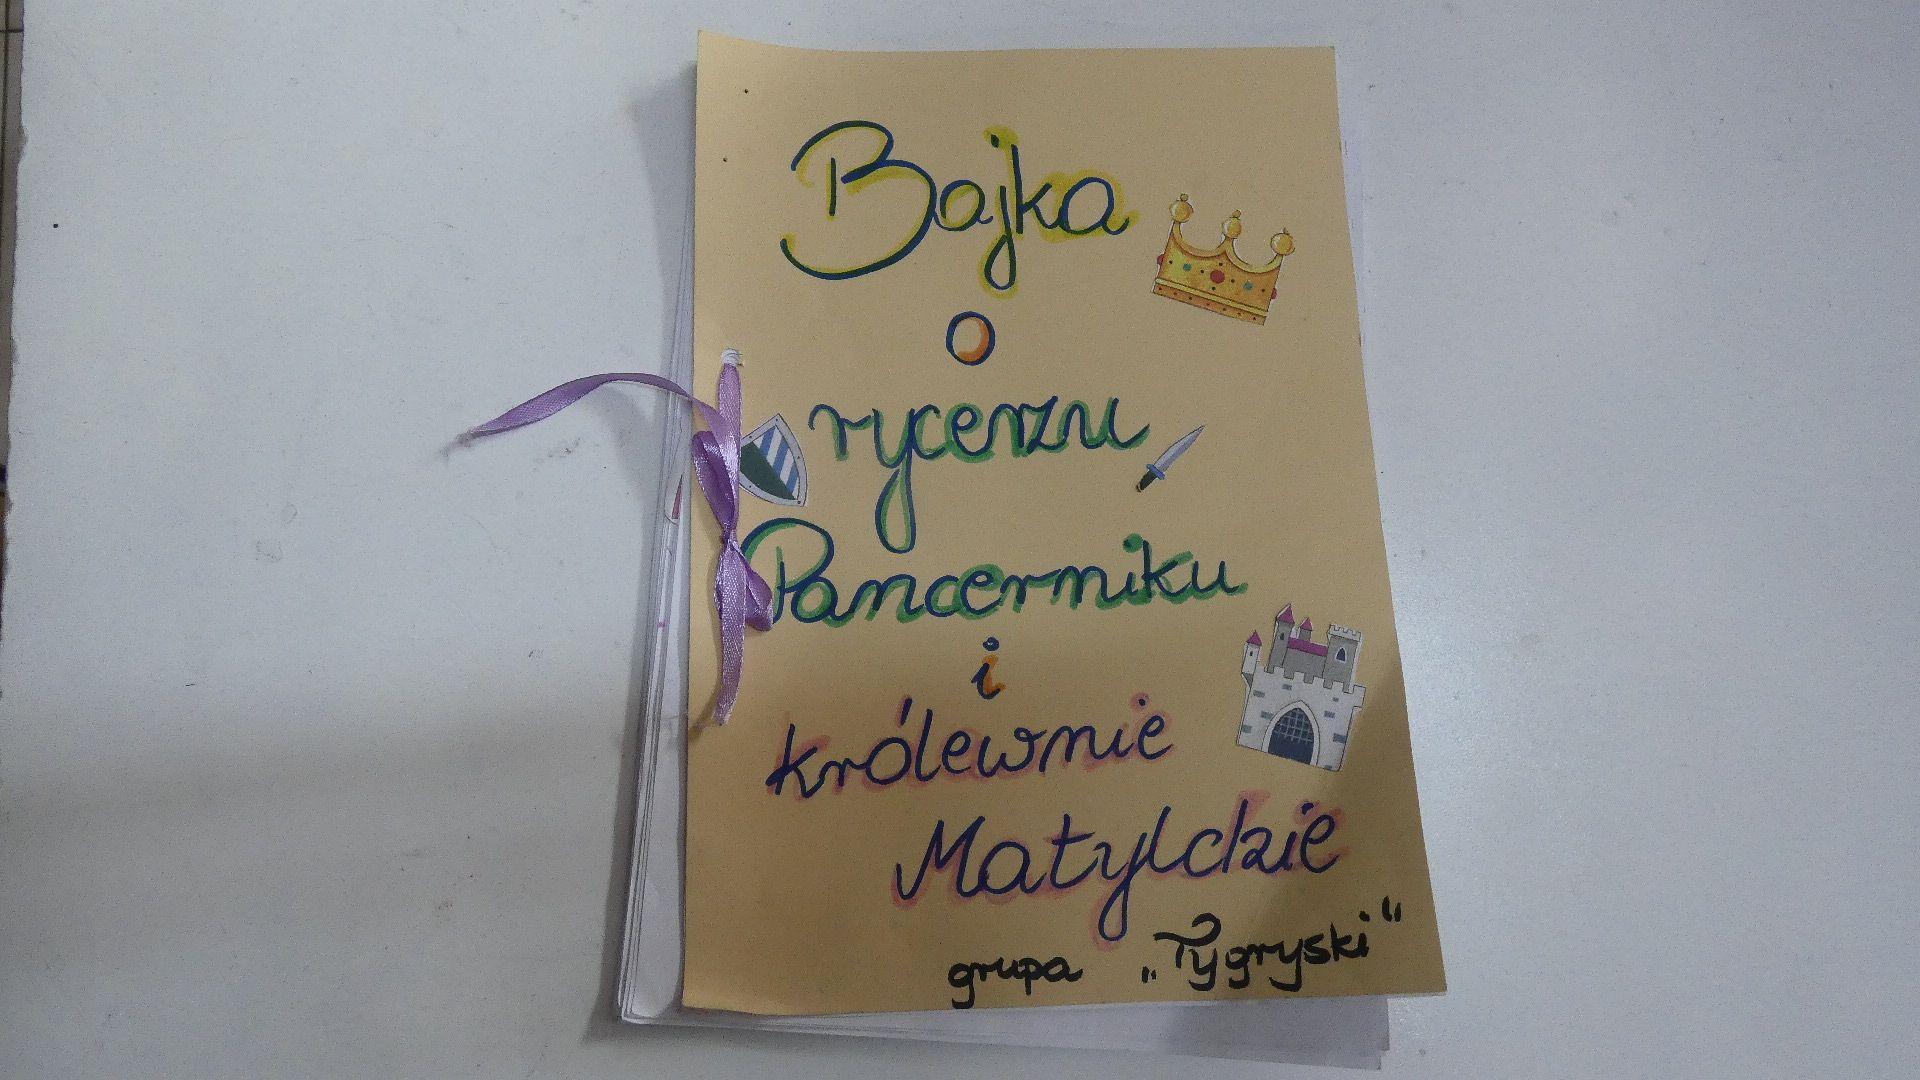 Bajka
o
rycerzu
Pancerniku
i
królewnie
Matyldzie
grupa „Tygryski”